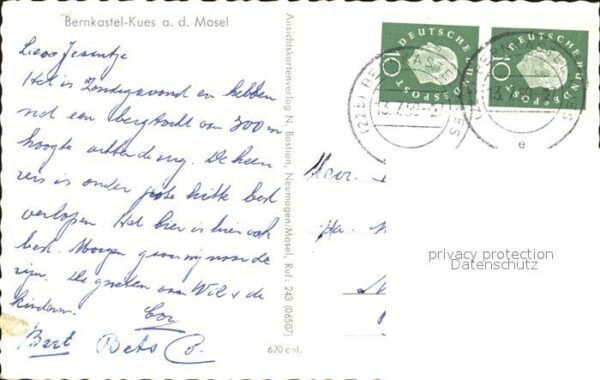 Bernkastel-Kues a. d. Mosel
Het is Zondagavond en hebben
net een bergtocht van 300 m
hoogte achter de rug. De heen
reis is onder grote hitte best
verlopen. Het hier is hier ook
best. Morgen gaan wij naar de
rijn. De groeten aan Wil & de
kinderen.
Cor
Bert Bets C.
Ansichtskartenverlag N. Bastian, Neumagen/Mosel, Ruf: 243 (06507)
620 col.
DEUTSCHE BUNDESPOST
10
DEUTSCHE BUNDESPOST
10
(22b) BERNKASTEL-KUES
e
privacy protection
Datenschutz